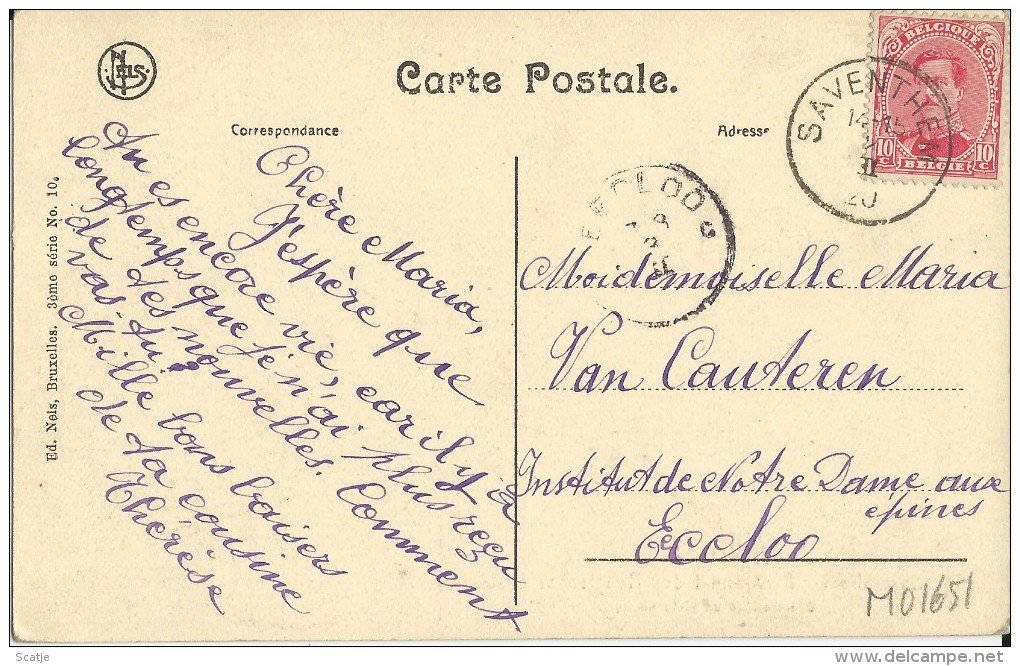 NELS
Carte Postale.
Correspondance
Adresse
BELGIQUE
10 C
10 C
BELGIE
SAVENTHEM
14-15
II
20
EECLOO
Ed. Nels, Bruxelles. 3ème série No. 10.
Chère Maria,
J'espère que
tu es encore en vie, car il y a
longtemps que je n'ai plus reçu
de des nouvelles. Comment
vas-tu?
Mille bons baisers
de ta cousine
Thérèse
Moidemoiselle Maria
Van Cauteren
Institut de Notre Dame aux
épines
Eecloo
M01651
Scatje
delcampe.net